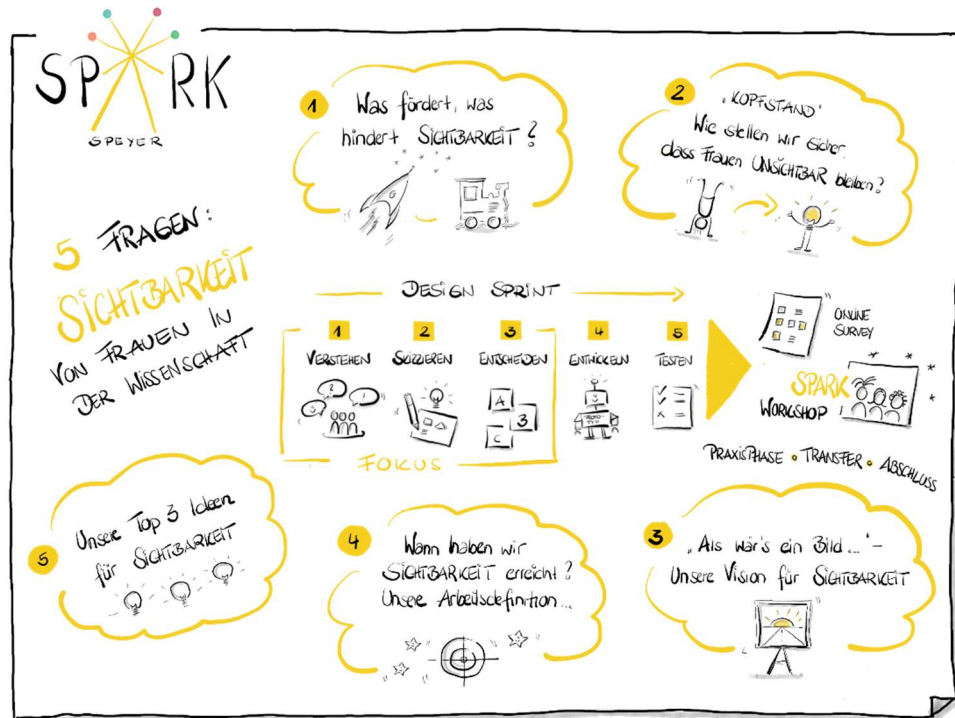 SPARK
SPEYER
5 FRAGEN:
SICHTBARKEIT
VON FRAUEN IN
DER WISSENSCHAFT
1
Was fördert, was
hindert SICHTBARKEIT?
2
"KOPFSTAND"
Wie stellen wir sicher,
dass Frauen UNSICHTBAR bleiben?
DESIGN SPRINT
1 2 3 4 5
VERSTEHEN SKIZZIEREN ENTSCHEIDEN ENTWICKELN TESTEN
? ! A B C
FOKUS
ONLINE
SURVEY
SPARK
WORKSHOP
PRAXISPHASE • TRANSFER • ABSCHLUSS
3
"Als wär's ein Bild..." –
Unsere Vision für SICHTBARKEIT
4
Wann haben wir
SICHTBARKEIT erreicht?
Unsere Arbeitsdefinition...
5
Unsere Top 3 Ideen
für SICHTBARKEIT